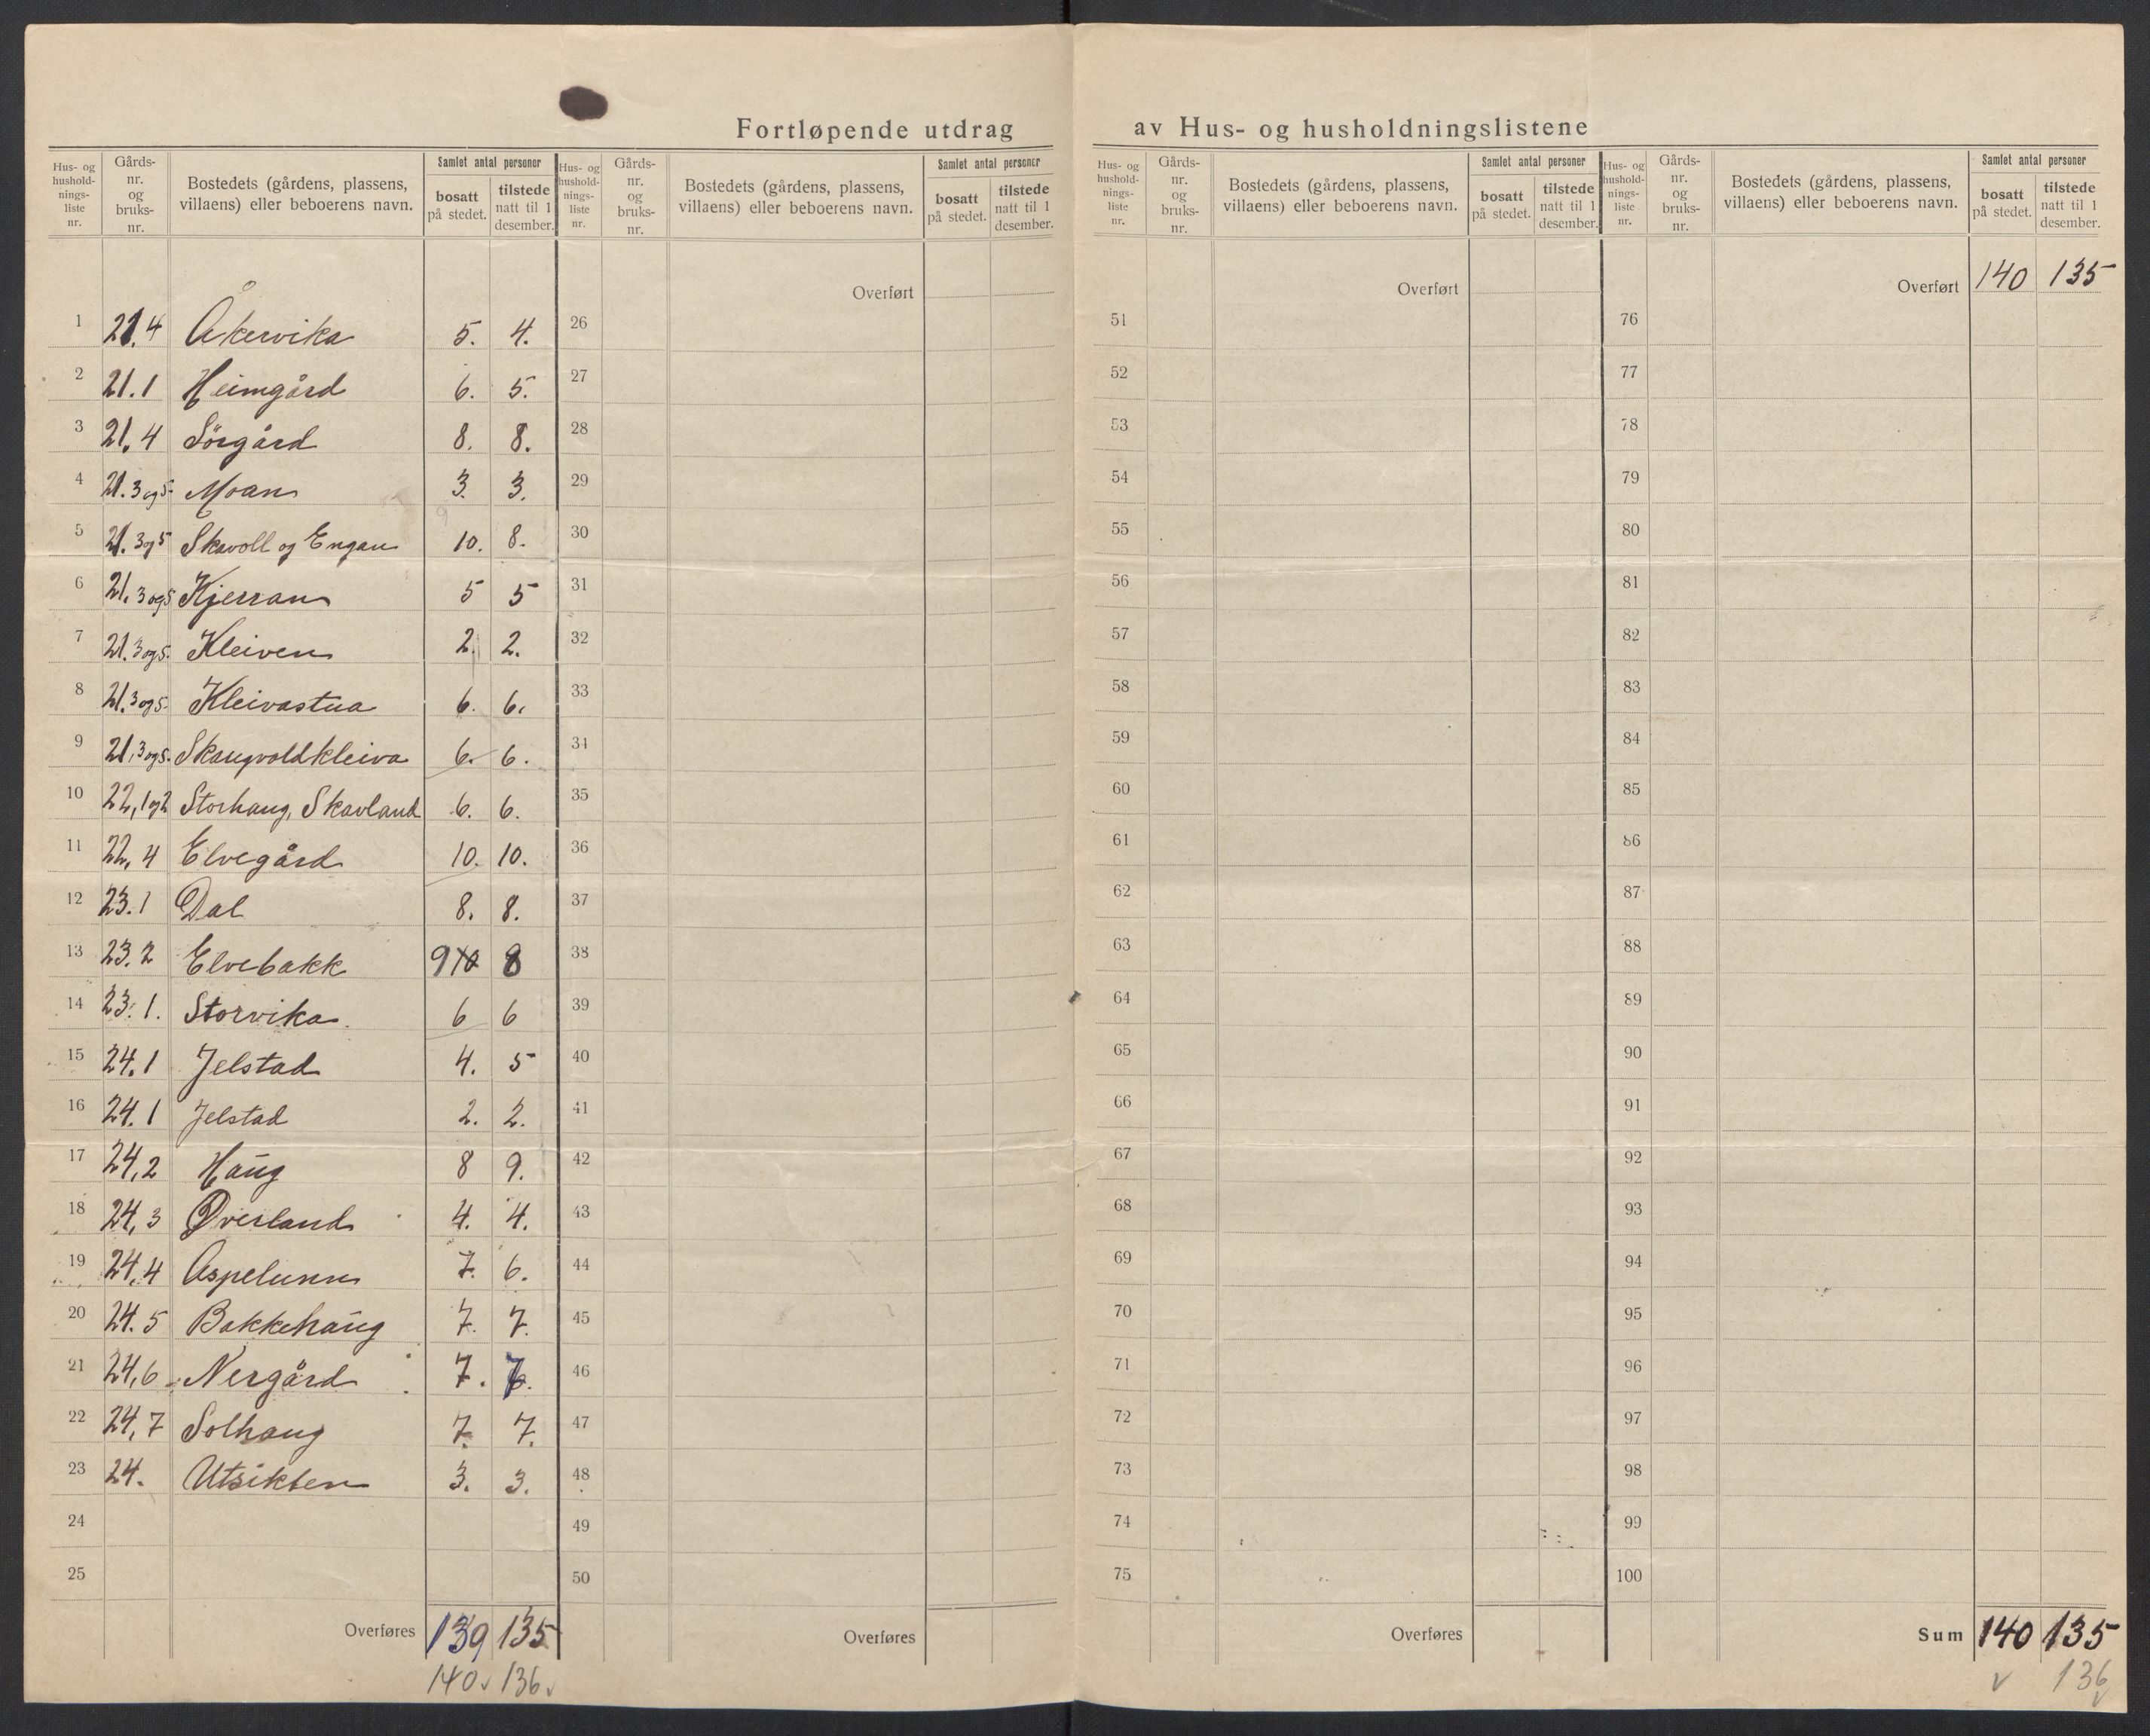 Fortløpende utdrag av Hus- og husholdningslistene
Hus- og hushold-nings-liste nr. Gårds-nr. og bruks-nr. Bostedets (gårdens, plassens, villaens) eller beboerens navn. Samlet antal personer bosatt på stedet. tilstede natt til 1 desember.
1 21.4 Åkervika 5. 4.
2 21.1 Heimgård 6. 5.
3 21.4 Sörgård 8. 8.
4 21.3 og 5. Moan 3. 3.
5 21.3 og 5 Skavoll og Engan 10. 8.
6 21.3 og 5 Kjerran 5 5
7 21.3 og 5. Kleiven 2. 2.
8 21.3 og 5. Kleivastua 6. 6.
9 21,3 og 5. Skaugvoldkleiva 6. 6.
10 22,1 og 2 Storhaug, Skavland 6. 6.
11 22,4 Elvegård 10. 10.
12 23.1 Dal 8. 8.
13 23.2 Elvebakk 9 10 8
14 23.1. Storvika 6 6
15 24.1 Jelstad 4. 5
16 24.1 Jelstad 2. 2.
17 24,2 Haug 8 9.
18 24,3 Øverland 4. 4.
19 24,4 Aspelunn 7. 6.
20 24.5 Bakkehaug 7. 7.
21 24,6 Nergård 7. 7.
22 24,7 Solhaug 7. 7.
23 24. Utsikten 3. 3.
24
25
Overføres 139 135
140. 136.
Hus- og hushold-nings-liste nr. Gårds-nr. og bruks-nr. Bostedets (gårdens, plassens, villaens) eller beboerens navn. Samlet antal personer bosatt på stedet. tilstede natt til 1 desember.
Overført
26
27
28
29
30
31
32
33
34
35
36
37
38
39
40
41
42
43
44
45
46
47
48
49
50
Overføres
Hus- og hushold-nings-liste nr. Gårds-nr. og bruks-nr. Bostedets (gårdens, plassens, villaens) eller beboerens navn. Samlet antal personer bosatt på stedet. tilstede natt til 1 desember.
Overført
51
52
53
54
55
56
57
58
59
60
61
62
63
64
65
66
67
68
69
70
71
72
73
74
75
Overføres
Hus- og hushold-nings-liste nr. Gårds-nr. og bruks-nr. Bostedets (gårdens, plassens, villaens) eller beboerens navn. Samlet antal personer bosatt på stedet. tilstede natt til 1 desember.
Overført 140 135
76
77
78
79
80
81
82
83
84
85
86
87
88
89
90
91
92
93
94
95
96
97
98
99
100
Sum 140 135
136